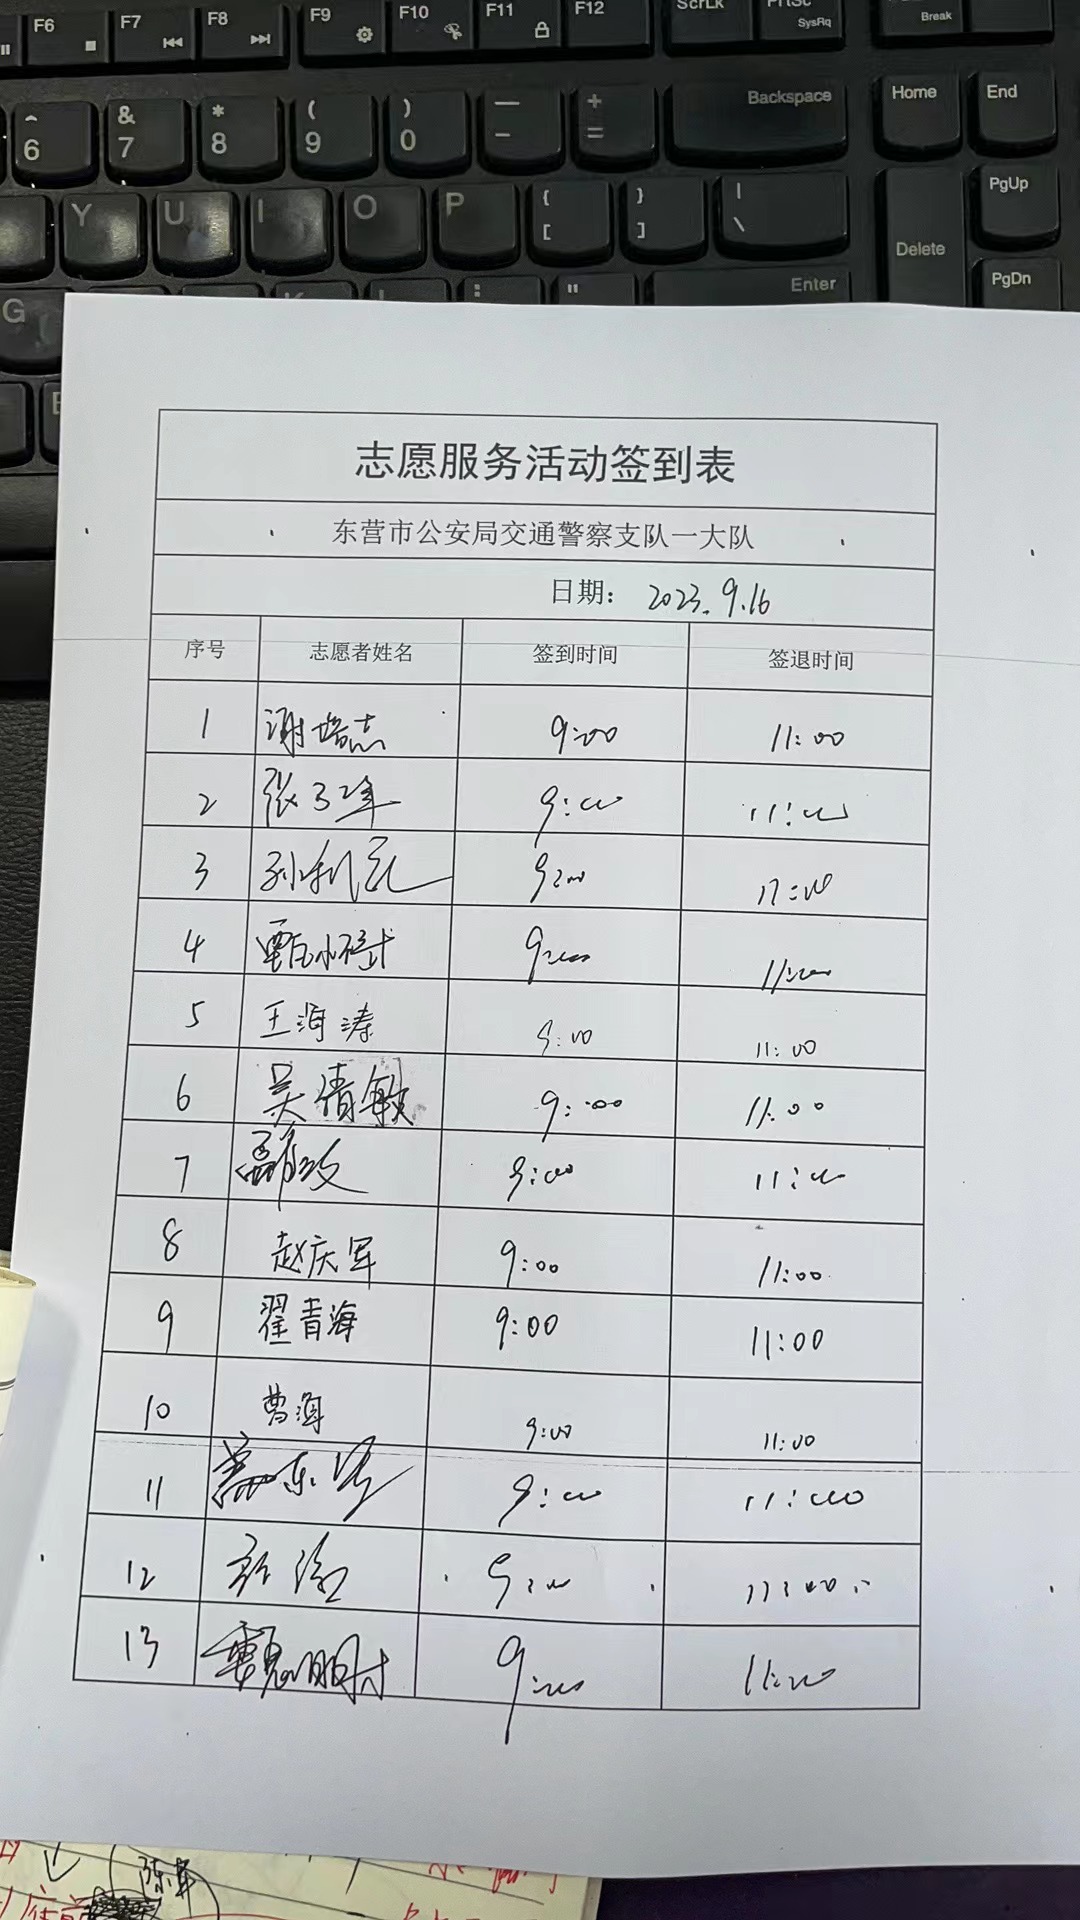 F6
F7
F8
F9
F10
F11
F12
ScrLk
PrtSc
SysRq
Break
^
6
&
7
*
8
(
9
)
0
—
-
+
=
Backspace
Home
End
Y
U
I
O
P
{
[
}
]
|
\
Delete
PgUp
PgDn
G
K
L
:
"
Enter
志愿服务活动签到表
东营市公安局交通警察支队一大队
日期： 2023.9.16
序号 志愿者姓名 签到时间 签退时间
1 谢培志 9:00 11:00
2 张 9:00 11:00
3 孙利 9:00 11:00
4 甄小 9:00 11:00
5 王海涛 9:00 11:00
6 吴清敏 9:00 11:00
7 9:00 11:00
8 赵庆军 9:00 11:00
9 翟青海 9:00 11:00
10 曹海 9:00 11:00
11 东 9:00 11:00
12 9:00 11:00
13 明 9:00 11:00